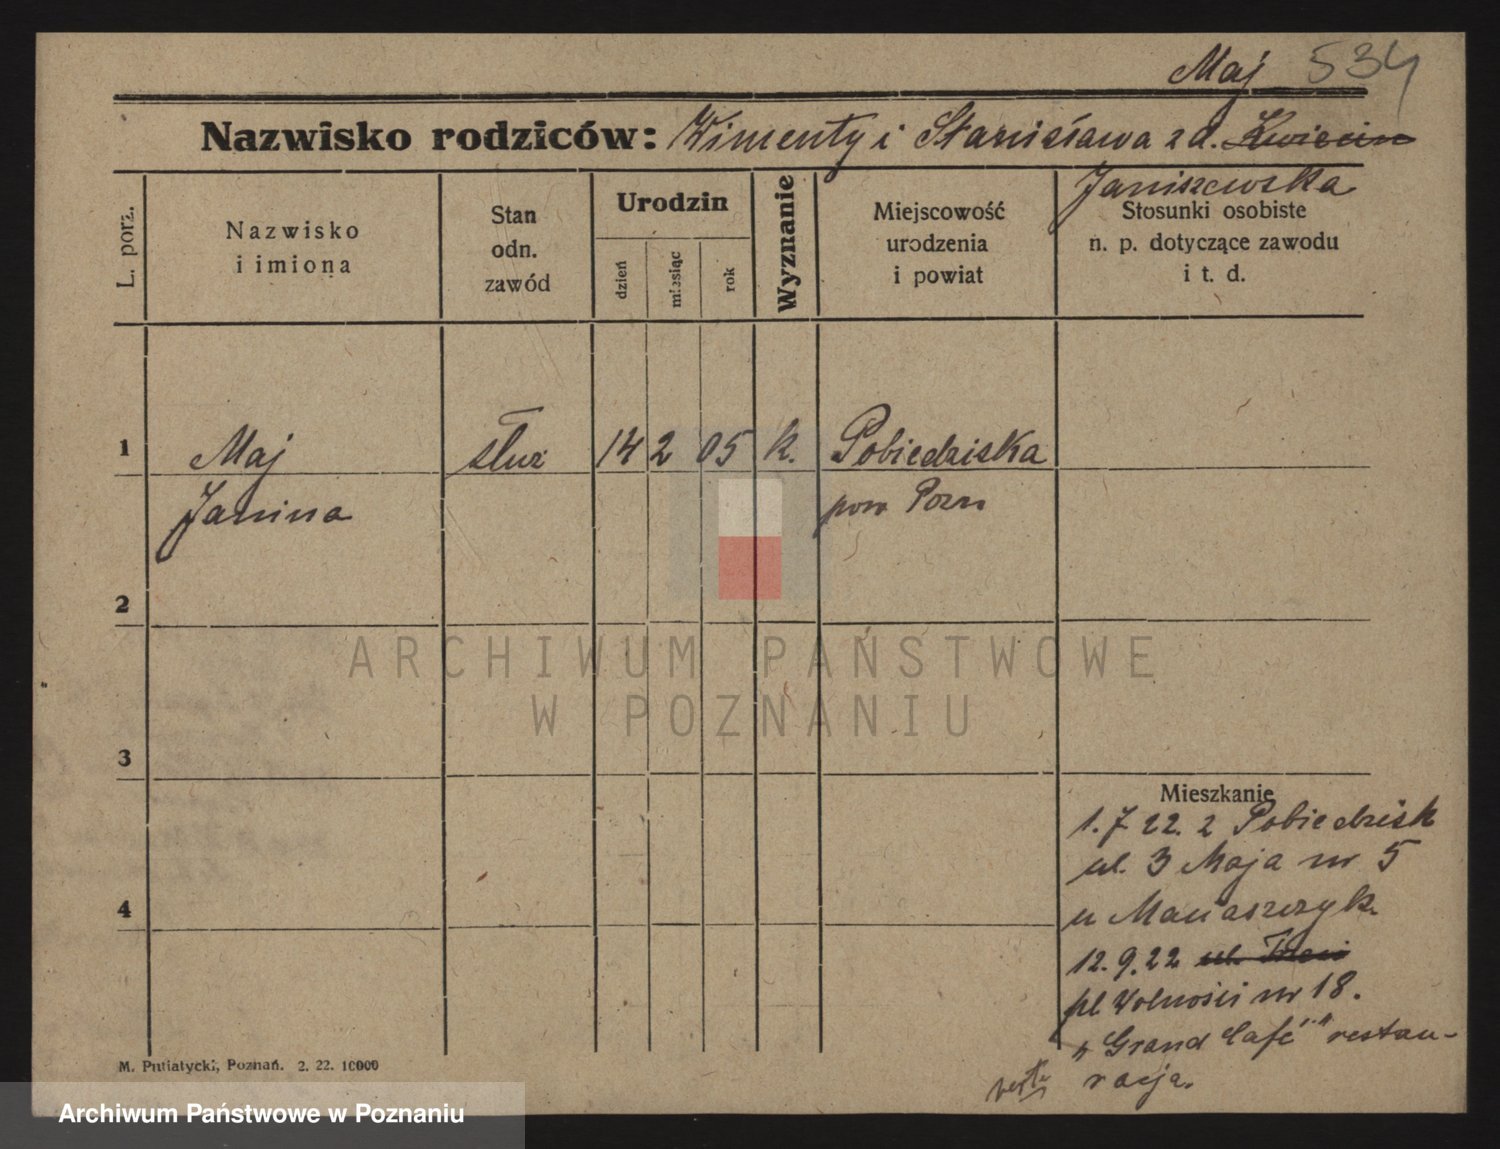 Maj 534
Nazwisko rodziców: Wincenty i Stanisława z d. Kwiecin
Janiszewska
L. porz.
Nazwisko i imiona
Stan odn. zawód
Urodzin
dzień
miesiąc
rok
Wyznanie
Miejscowość urodzenia i powiat
Stosunki osobiste
n. p. dotyczące zawodu
i t. d.
1 Maj służ 14 2 05 k. Pobiedziska
Janina pow Pozn
2
ARCHIWUM PAŃSTWOWE
W POZNANIU
3
Mieszkanie
1. 7 22. z Pobiedzisk
ul. 3 Maja nr 5
4
u
12. 9. 22 ul.
pl Wolności nr 18.
"Grand Café" restau-
racja.
verte
M. Putiatycki, Poznań. 2. 22. 10000
Archiwum Państwowe w Poznaniu